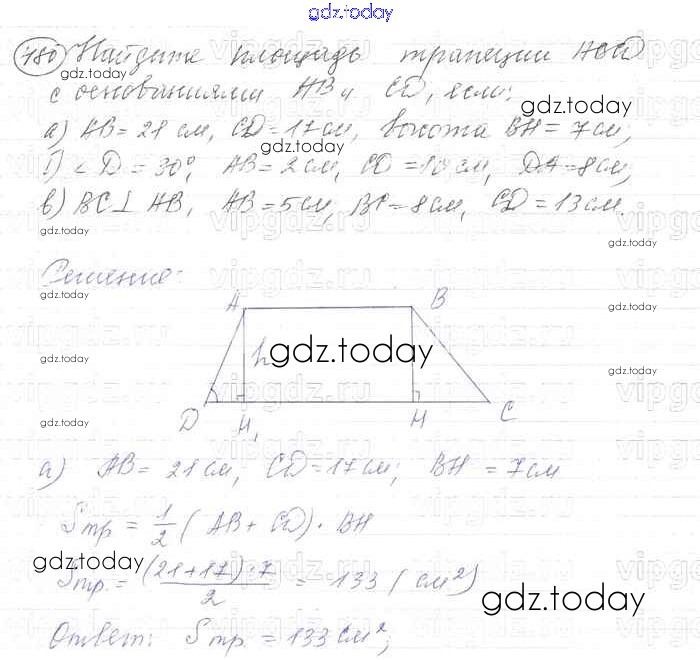 gdz.today
480 Найдите площадь трапеции ABCD
gdz.today
с основаниями AB и CD, если:
gdz.today
а) AB = 21 см, CD = 17 см, высота BH = 7 см;
gdz.today
б) ∠D = 30°, AB = 2 см, CD = 10 см, DA = 8 см;
в) BC ⊥ AB, AB = 5 см, BC = 8 см, CD = 13 см.
gdz.today
Решение:
gdz.today
A B
gdz.today
h gdz.today
D H₁ H C
gdz.today
а) AB = 21 см; CD = 17 см; BH = 7 см
Sтр = 1/2 (AB + CD) · BH
gdz.today
Sтр. = (21+17)·7/2 = 133 (см²)
gdz.today
Ответ: Sтр. = 133 см²;